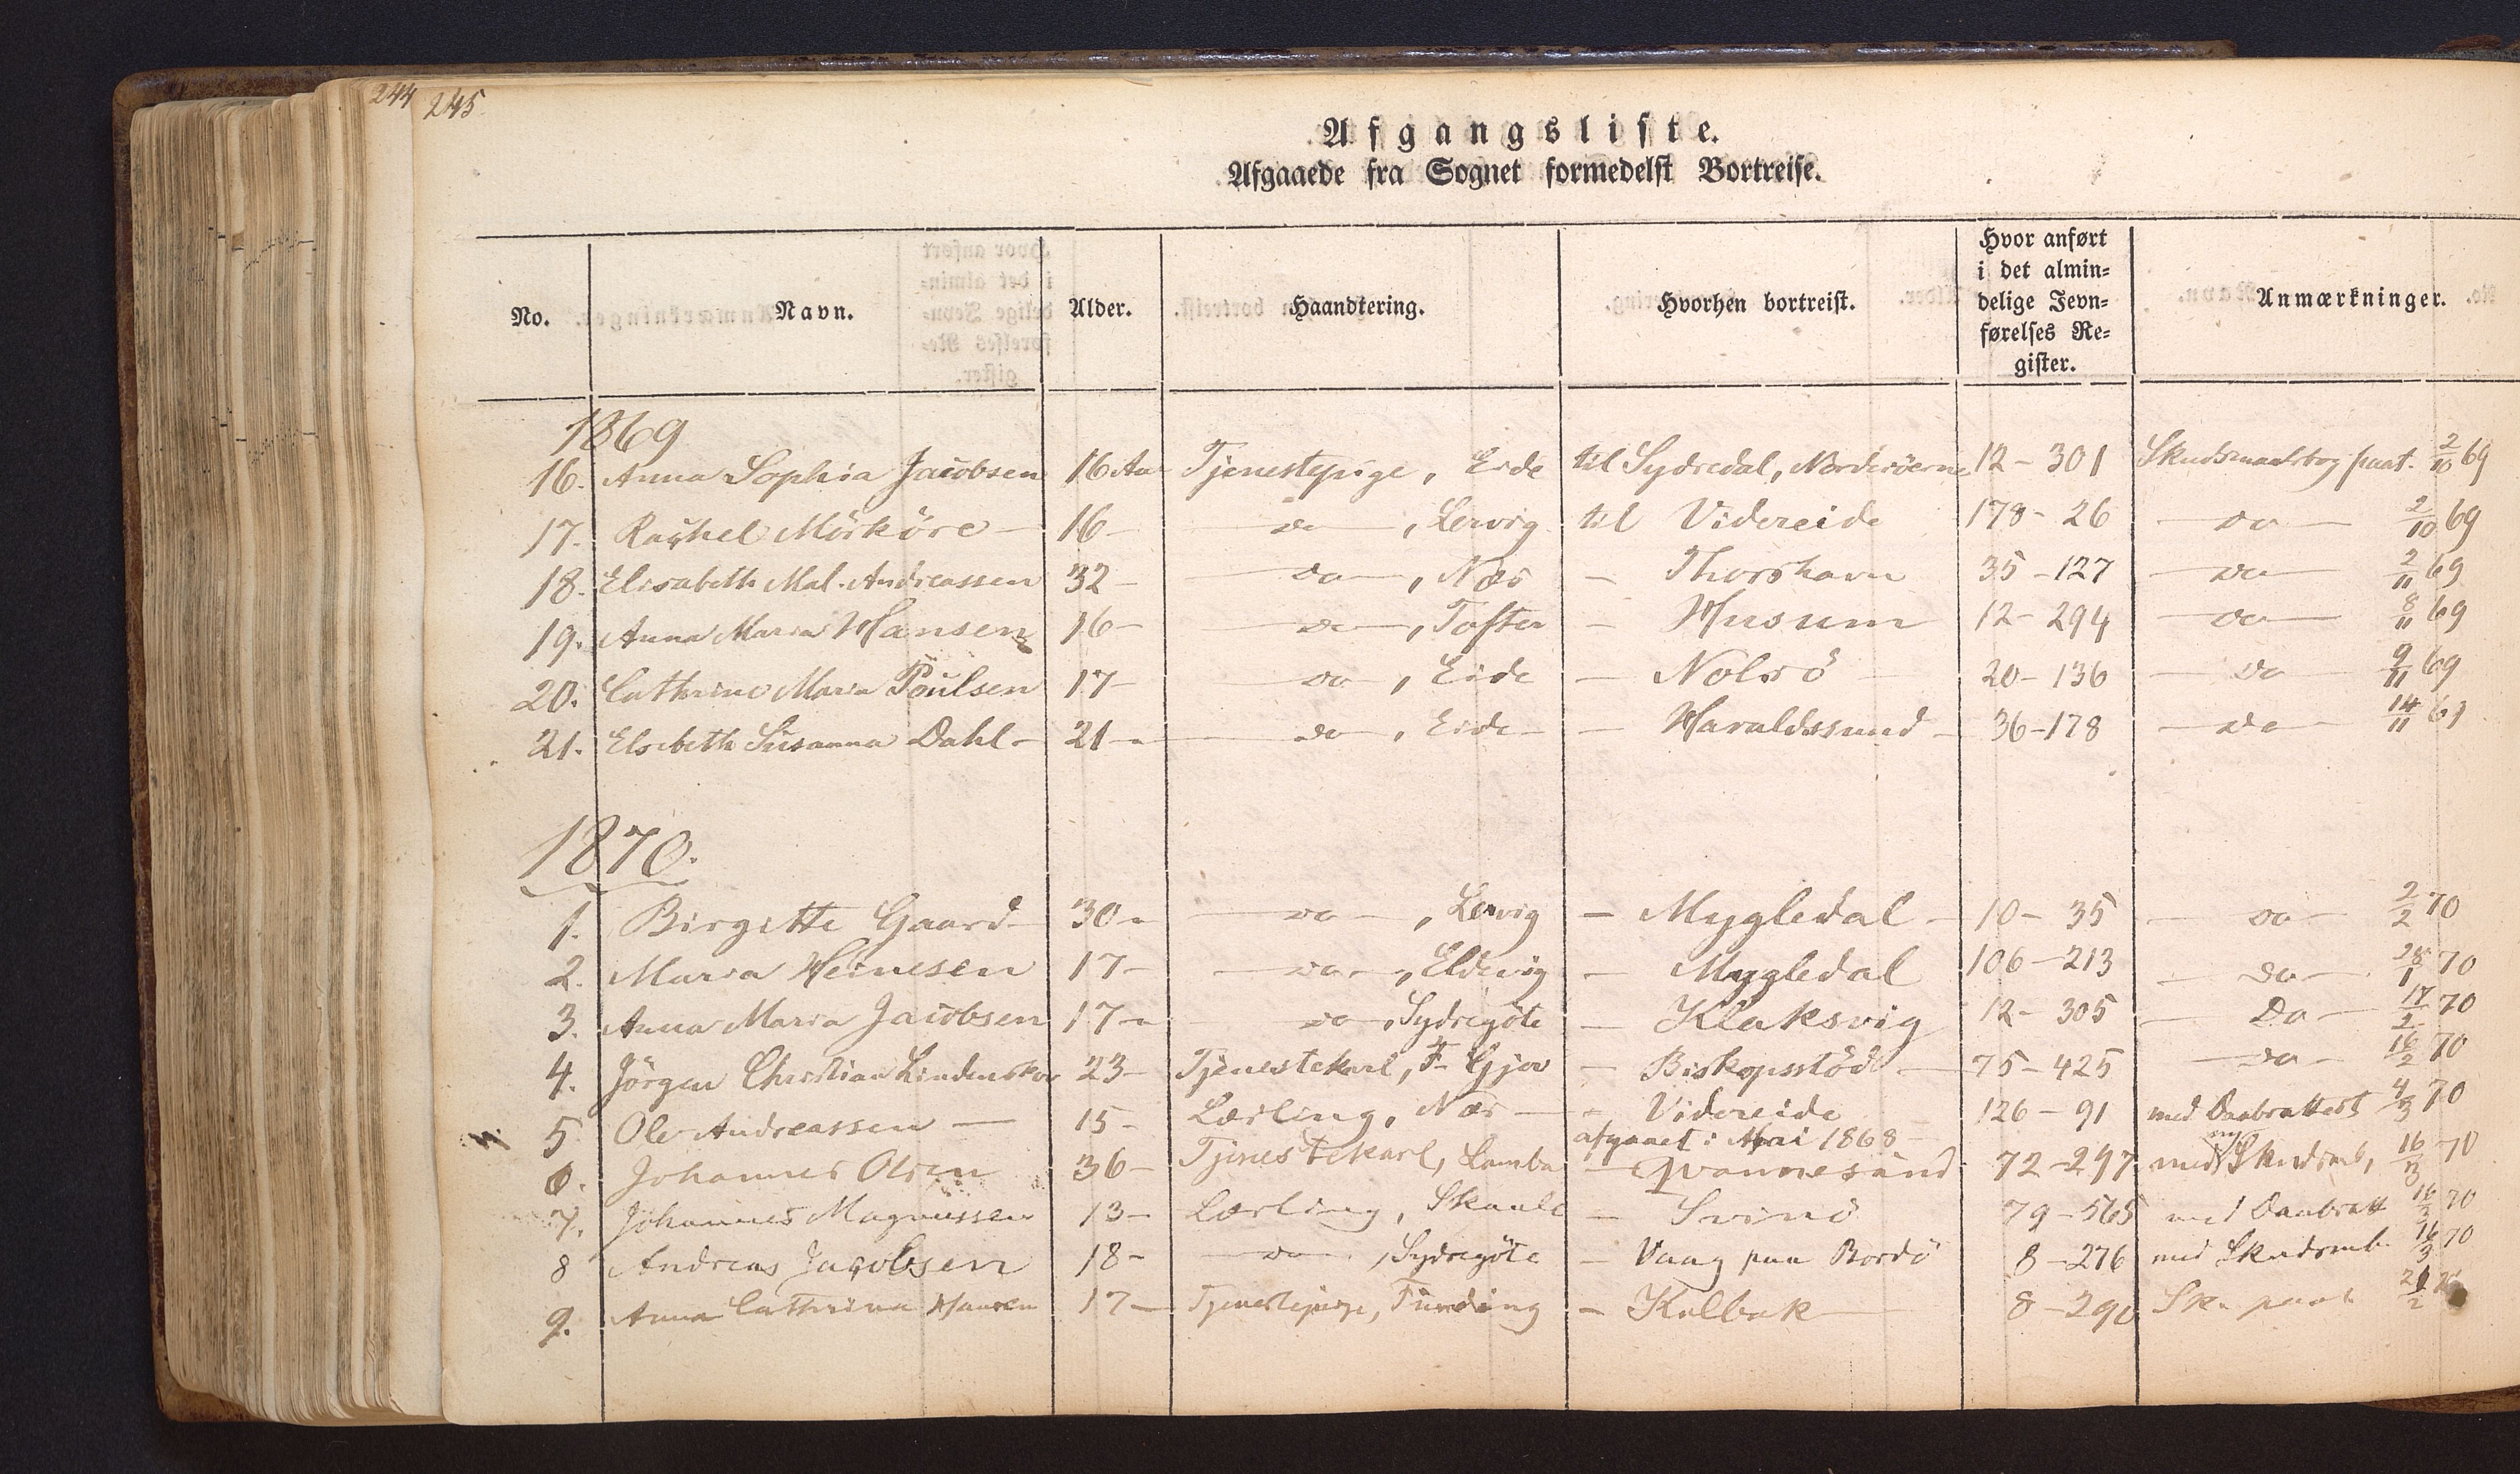 244 245.
Afgangsliste.
Afgaaede fra Sognet formedelst Bortreise.
No. Navn. Alder. Haandtering. Hvorhen bortreist. Hvor anført i det almin= delige Jevn= førelses Re= gister. Anmærkninger.
1869
16. Anna Sophia Jacobsen 16 Aar Tjenestepige, Eide til Sydredal, Norderöerne 12 - 301 Skudsmaalsbog paat. 2/10 69
17. Rachel Mörköre - 16 - do - , Lervig til Videreide 178 - 26 - do - 2/10 69
18. Elisabeth Mal. Andreassen 32 - - do - , Næs - Thorshavn 35 - 127 - do - 2/11 69
19. Anna Maria Hansen 16 - - do - , Tofter - Husum 12 - 294 - do - 8/11 69
20. Cathrine Maria Poulsen 17 - do , Eide - Nolsö - 20 - 136 - do - 9/11 69
21. Elsebeth Susanna Dahl - 21 - - do - , Eide - - Haraldssund - 36 - 178 - do - 14/11 69
1870.
1. Birgitte Gaard - 30 - - do - , Lervig - Mygledal - 10 - 35 - do - 2/2 70
2. Maria Heinesen 17 - - do - , Eldevig - Mygledal 106 - 213 - do - 28/1 70
3. Anna Maria Jacobsen 17 - - do - , Sydregöte - Klaksvig 12 - 305 - Do - 14/2 70
4. Jörgen Christian Lindenskov 23 - Tjenestekarl, Fra Gjov - Biskopsstöd - 75 - 425 - do - 16/2 70
5 Ole Andreassen - 15 - Lærling, Næs - - Videreide 126 - 91 med Daabsattest 4/3 70
afgaaet i Mai 1868
6. Johannes Olsen 36 - Tjenestekarl, Lamba - Qvannesund 72 - 247 med ny Skudsmb, 16/3 70
7. Johannes Magnussen 13 - Lærling, Skaale - Svinö 79 - 565 med Daabsatt 16/3 70
8 Andreas Jacobsen 18 - - do - , Sydregöte - Vaag paa Bordö 8 - 276 med Skudsmb. 16/3 70
9. Anna Cathrina Hansen 17 - Tjenestepige, Funding - Kolbak - 8 - 290 Sk. paat.